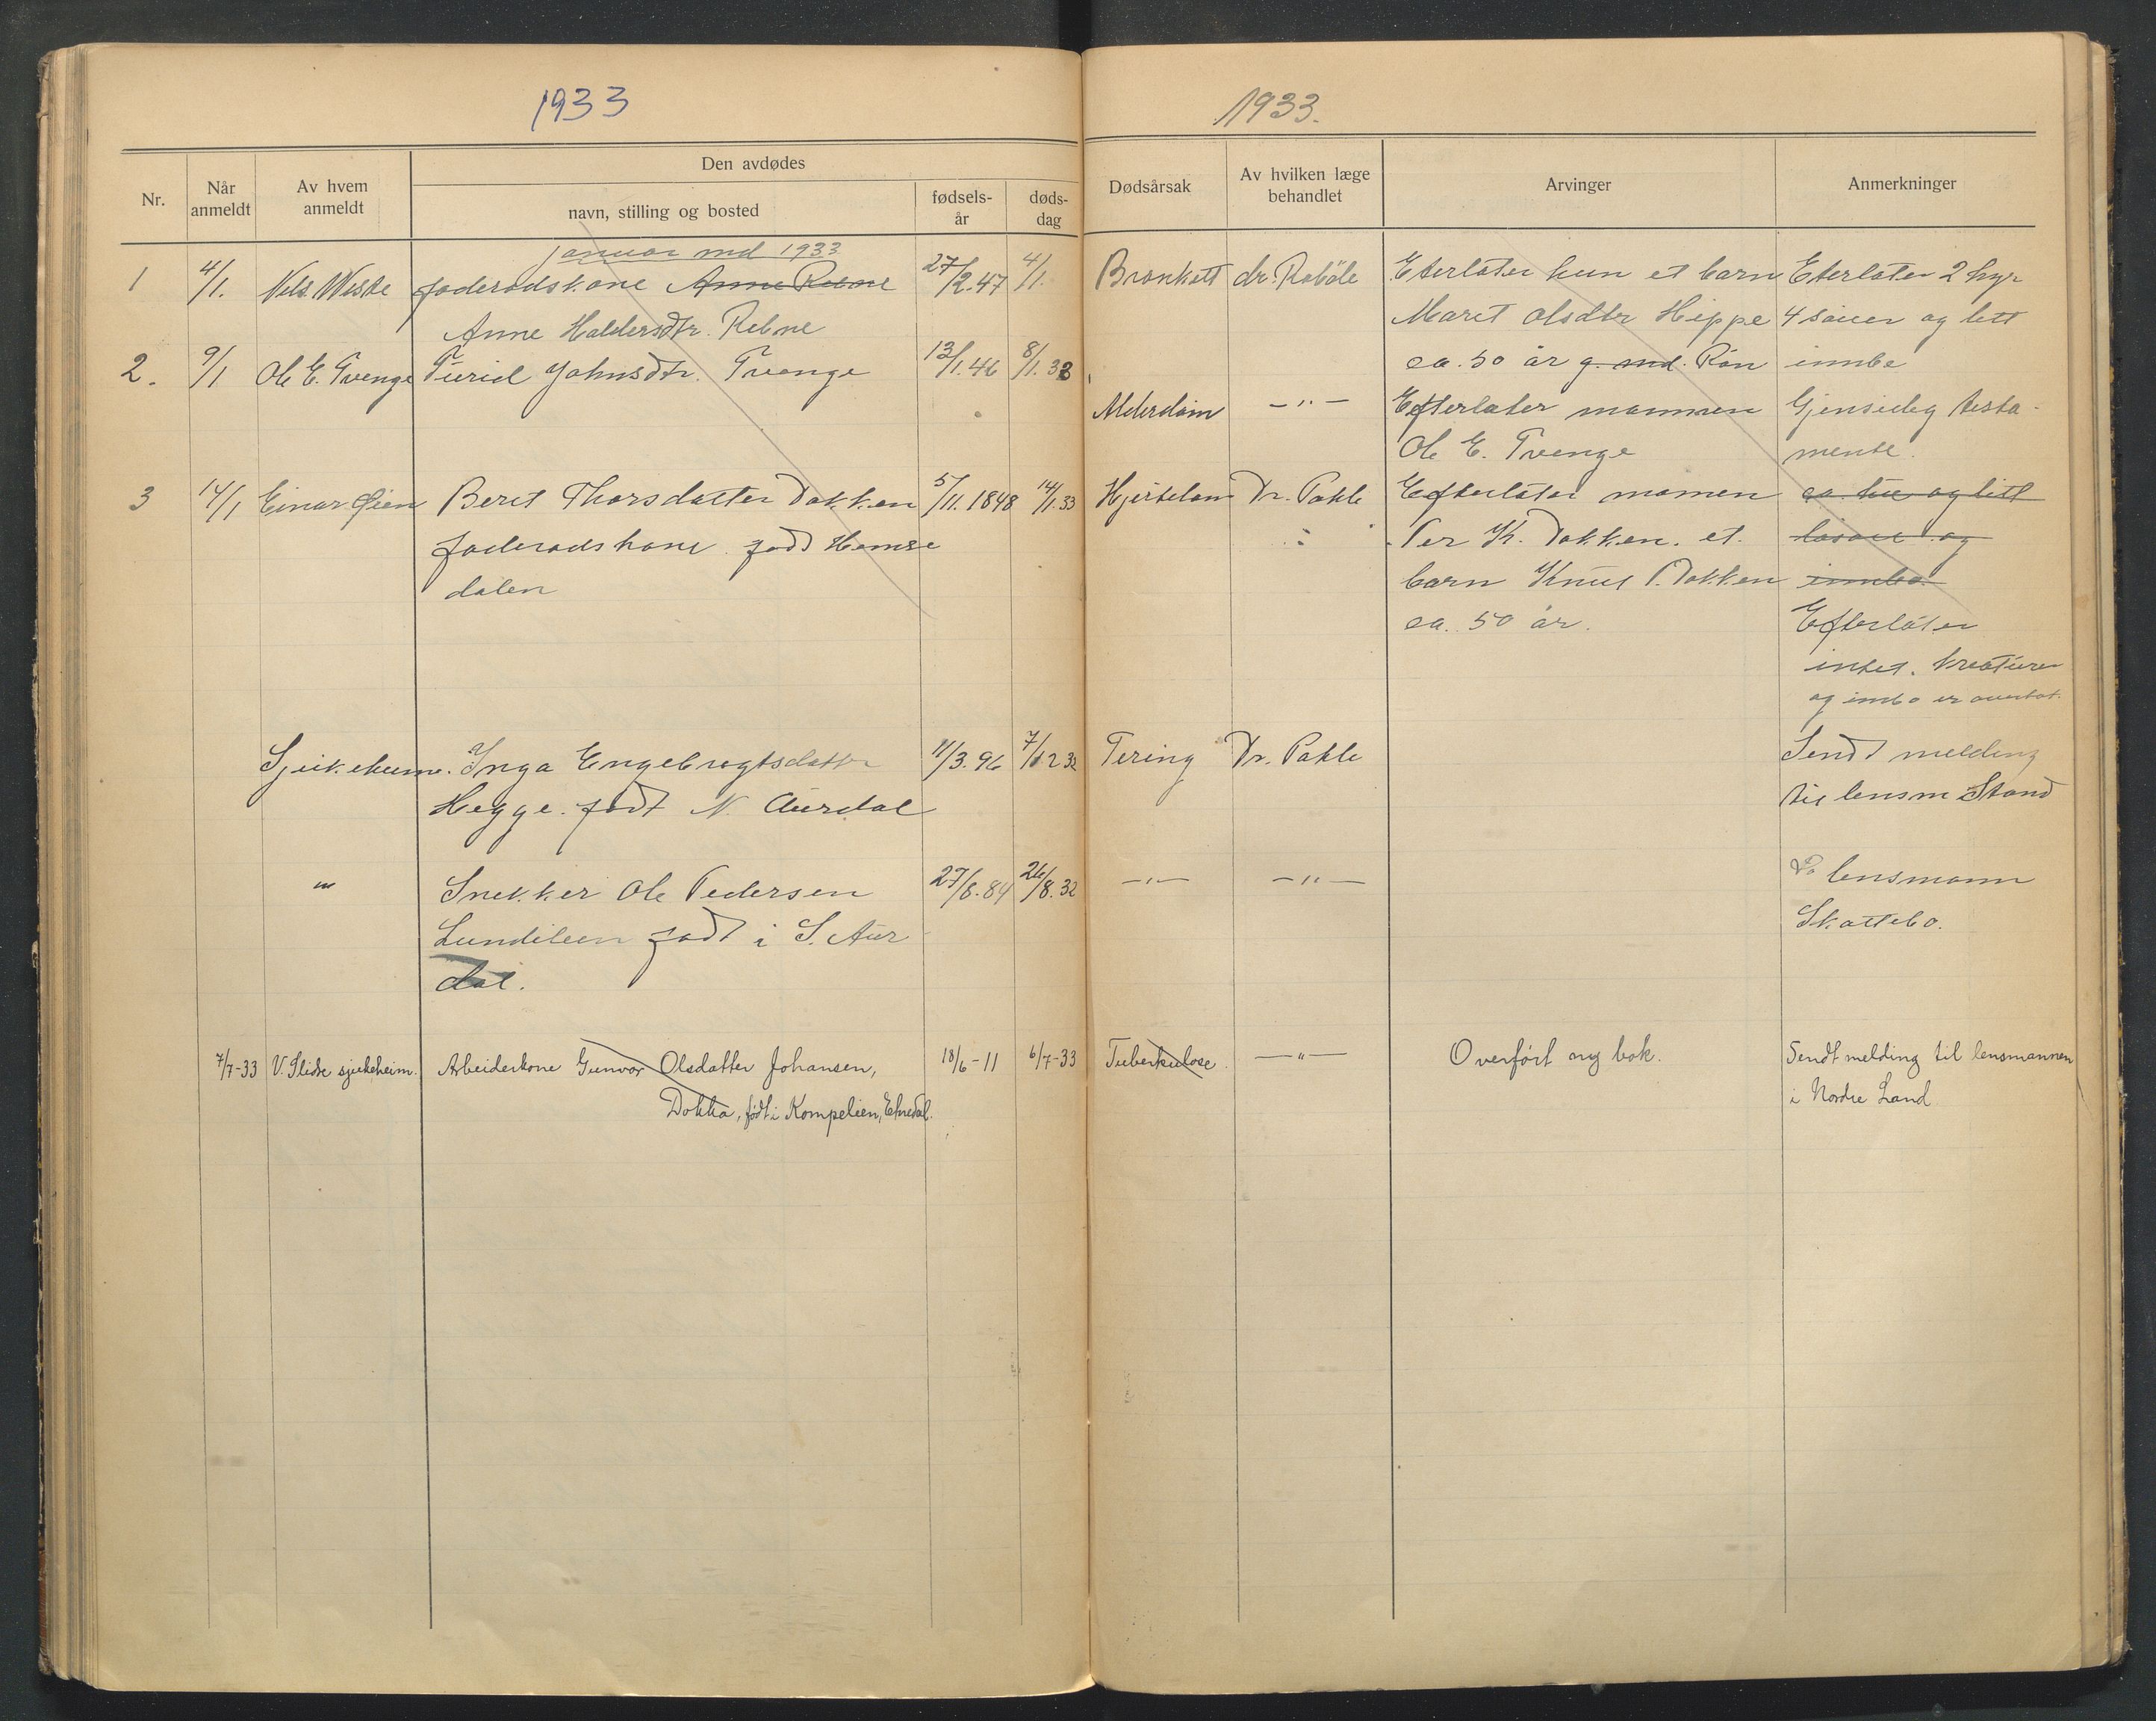 1933
1933.
Nr.
Når anmeldt
Av hvem anmeldt
Den avdødes
navn, stilling og bosted
fødsels-år
døds-dag
Dødsårsak
Av hvilken læge behandlet
Arvinger
Anmerkninger
januar md 1933
1 4/1. Nels. Weske foderadskone Anne Rebne 27/2.47 4/1. Bronkitt dr. Raböle Eterlater kun et barn Eterlater 2 kyr
Anne Haldorsdtr. Rebne Marit Olsdtr Hippe 4 sauer og litt
2. 9/1 Ole E. Tvenge Turid Johnsdtr. Tvenge 13/1.46 8/1.33 ca. 50 år g. md. Røn innbo
Alderdom -"- Efterlater mannen Gjensidig testa-
Ole E. Tvenge mente.
3 14/1 Einar Øien Beret Thorsdatter Dokken 5/11.1848 14/1.33 Hjertelam Dr. Pahle Efterlater mannen ca. kue og litt
foderadskone født Hemse Per K. Dokken. et. løsøre og
dalen barn Knut P. Dokken innbo
ca. 50 år. Efterlater
intet. kreaturer
og innbo er overtat.
Sjukeheim. Inga Engebregtsdatter 11/3.96 7/12 32 Tering Dr. Pahle Sendt melding
Hegge. født N. Aurdal til lensm Strand
" Snekker Ole Pedersen 27/8.84 26/8.32 -"- -"- Do lensmann
Lundeleen født i S. Aur Skattebo.
dal.
7/7-33 V. Slidre sjukeheim. Arbeiderkone Gunvor Olsdatter Johansen, 18/6-11 6/7-33 Tuberkulose -"- Overført ny bok. Sendt melding til lensmannen
Dokka, født i Kompelien, Etnedal. i Nordre Land